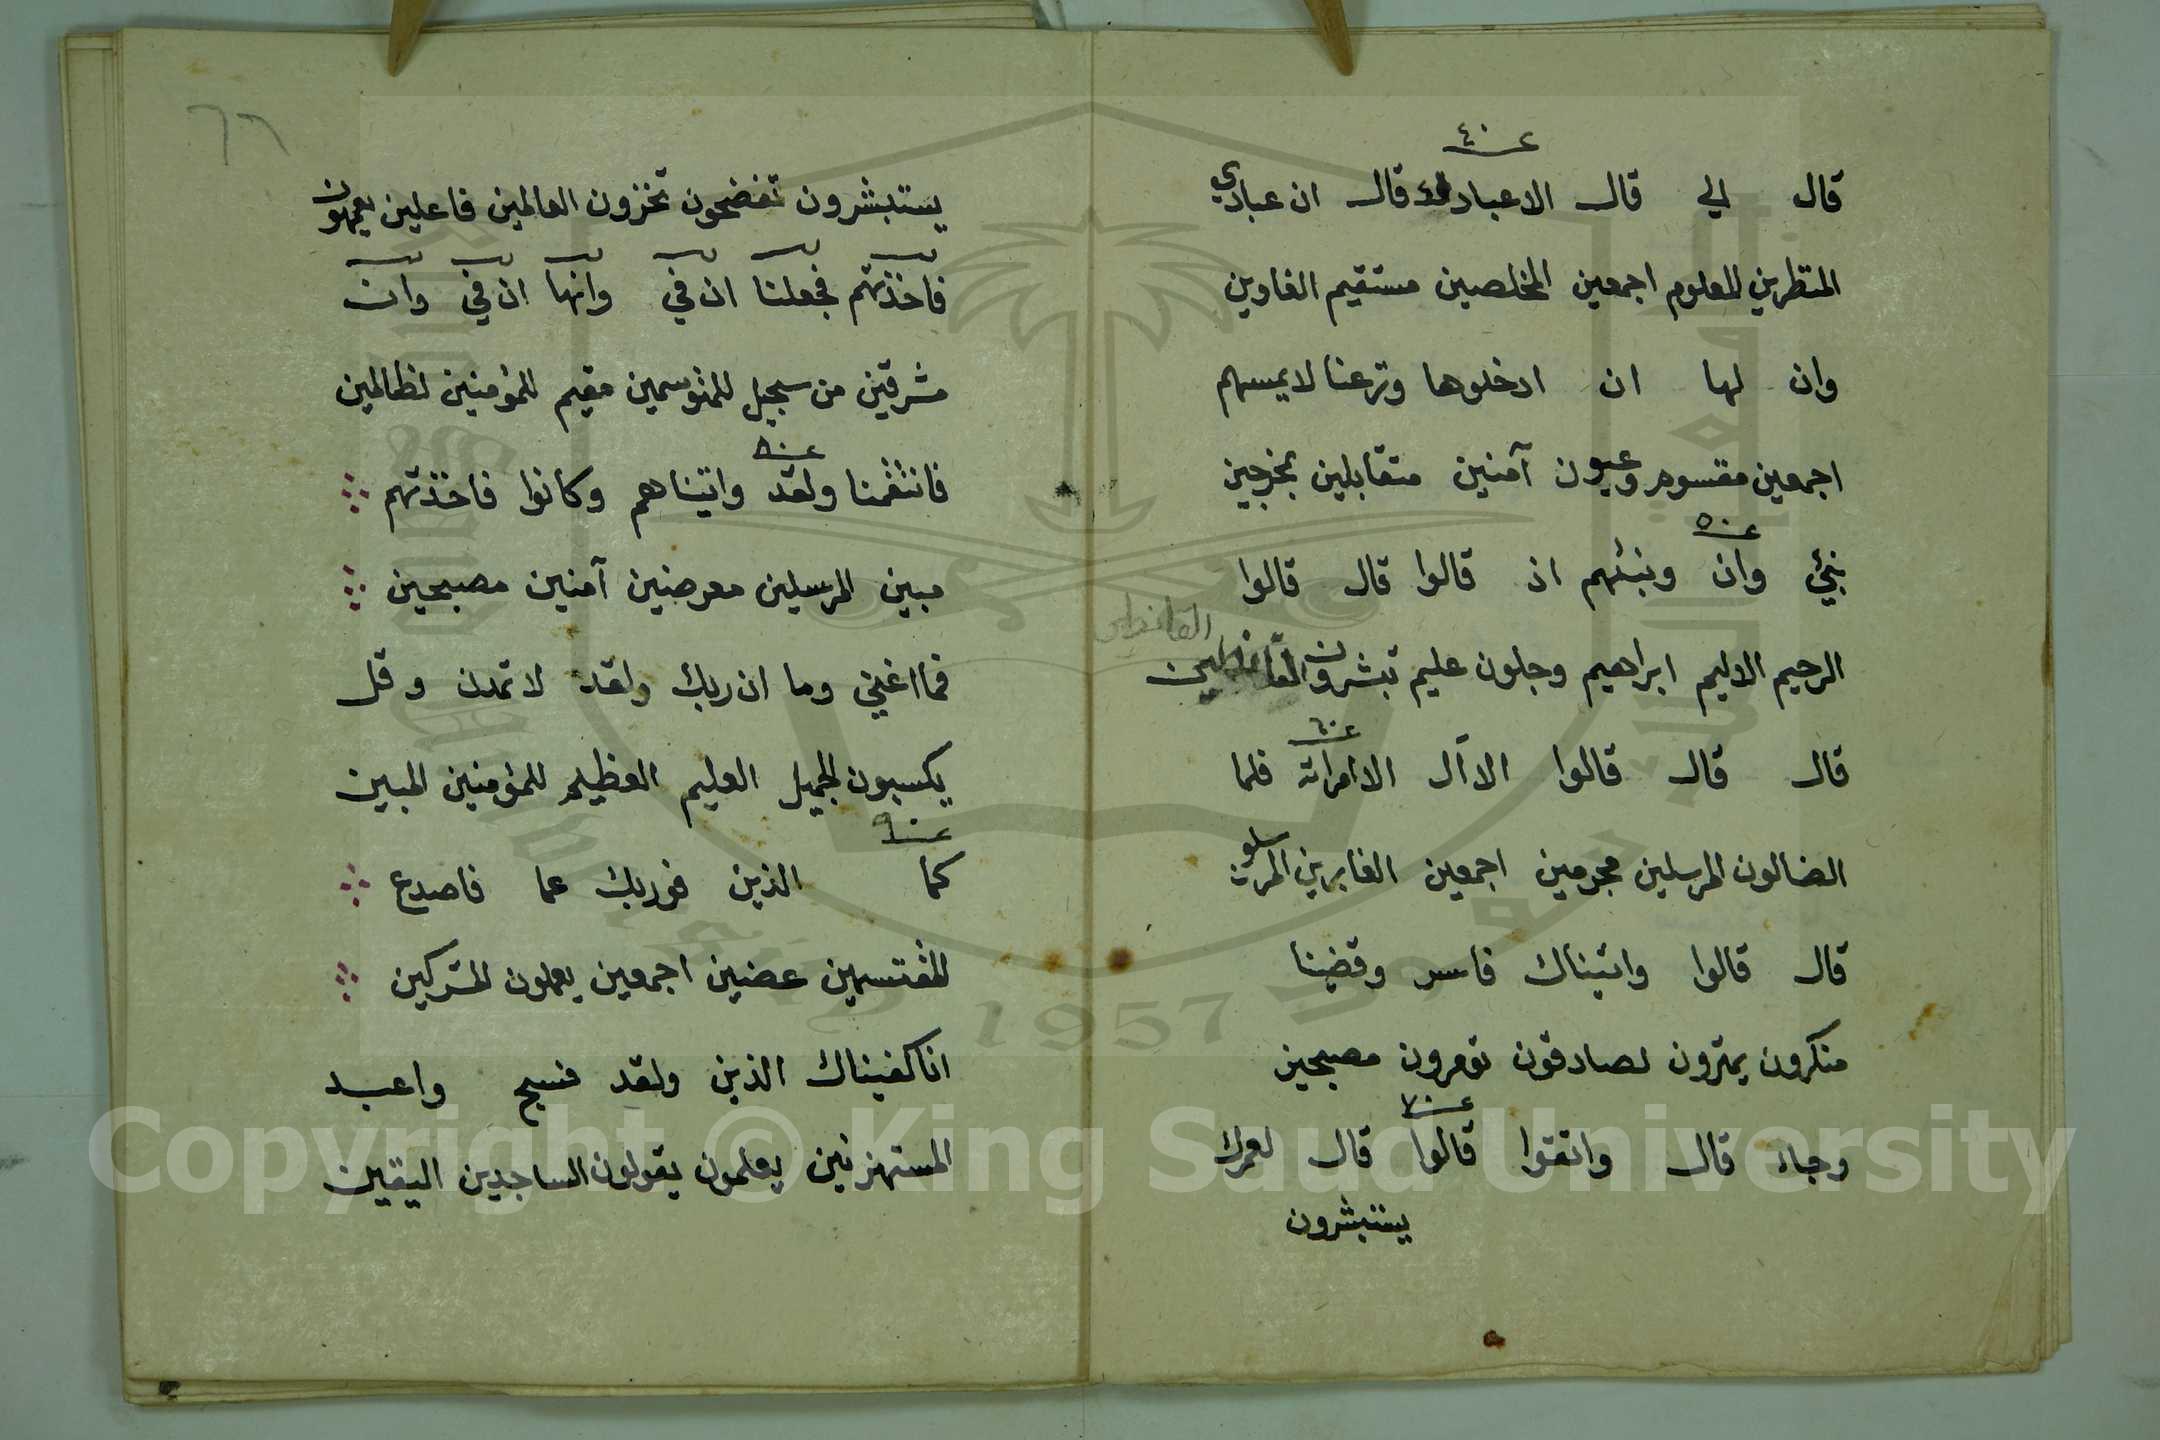 عـ٤٠
قال الي قال الاعبادك قال ان عبادي
المنظرين المعلوم اجمعين المخلصين مستقيم الغاوين
وان لها ان ادخلوها ونزعنا لا يمسهم
اجمعين مقسوم وعيون آمنين متقابلين بمخرجين
عـ٥٠
نبئ وان ونبئهم اذ قالوا قال قالوا
القانطين
الرحيم الاليم ابراهيم وجلون عليم تبشرون القانطين
عـ٦٠
قال قال قالوا الا آل الا امراته فلما
الضالون المرسلين مجرمين اجمعين الغابرين المرسلون
قال قالوا واتيناك فاسر وقضينا
منكرون يمترون لصادقون تومرون مصبحين
عـ٧٠
وجاء قال واتقوا قالوا قال لعمرك
يستبشرون
٦٦
يستبشرون تفضحون تخزون العالمين فاعلين يعمهون
فاخذتهم فجعلنا ان في وانها ان في وان
مشرقين من سجيل للمتوسمين مقيم للمؤمنين لظالمين
عـ٨٠
فانتقمنا ولقد واتيناهم وكانوا فاخذتهم
مبين المرسلين معرضين آمنين مصبحين
فما اغنى وما ان ربك ولقد لا تمدن وقل
يكسبون الجميل العليم العظيم للمؤمنين المبين
عـ٩٠
كما الذين فوربك عما فاصدع
المقتسمين عضين اجمعين يعملون المشركين
انا كفيناك الذين ولقد فسبح واعبد
المستهزئين يعلمون يقولون الساجدين اليقين
Copyright © King Saud University
1957